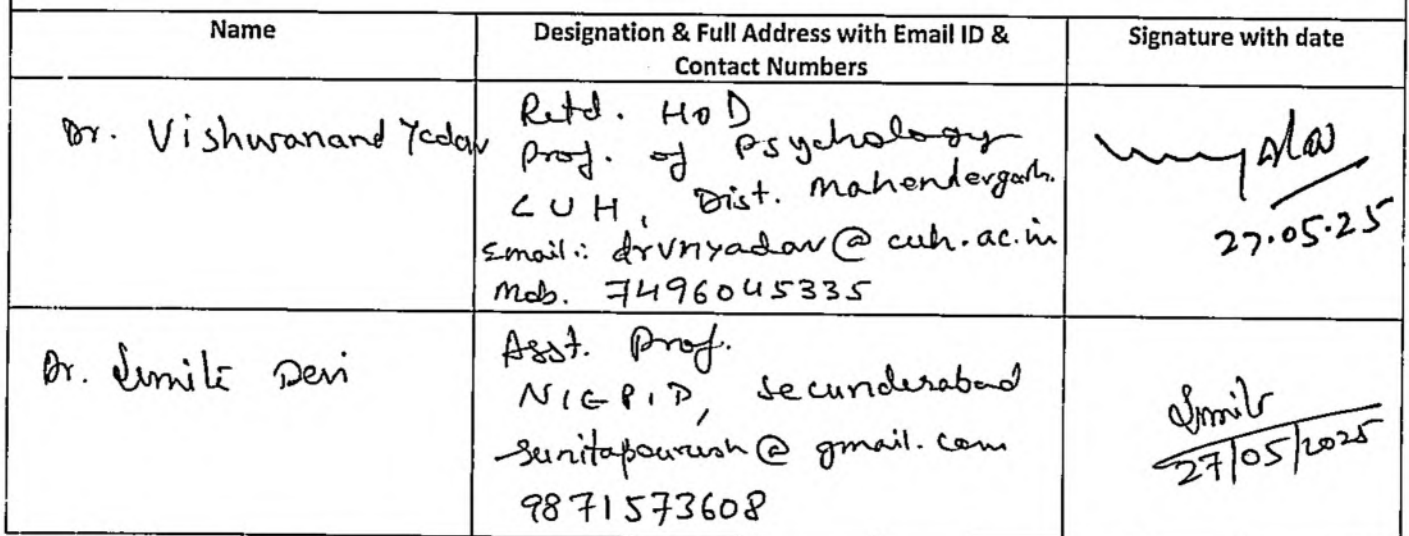 Name
Designation & Full Address with Email ID &
Contact Numbers
Signature with date
Dr. Vishwanand Yadav
Retd. HoD
Prof. of Psychology
CUH, Dist. Mahendergarh.
Email: drvnyadav@cuh.ac.in
Mob. 7496045335
27.05.25
Dr. Sunita Devi
Asst. Prof.
NIEPID, Secunderabad
sunitapourush@gmail.com
9871573608
Sunita
27/05/2025